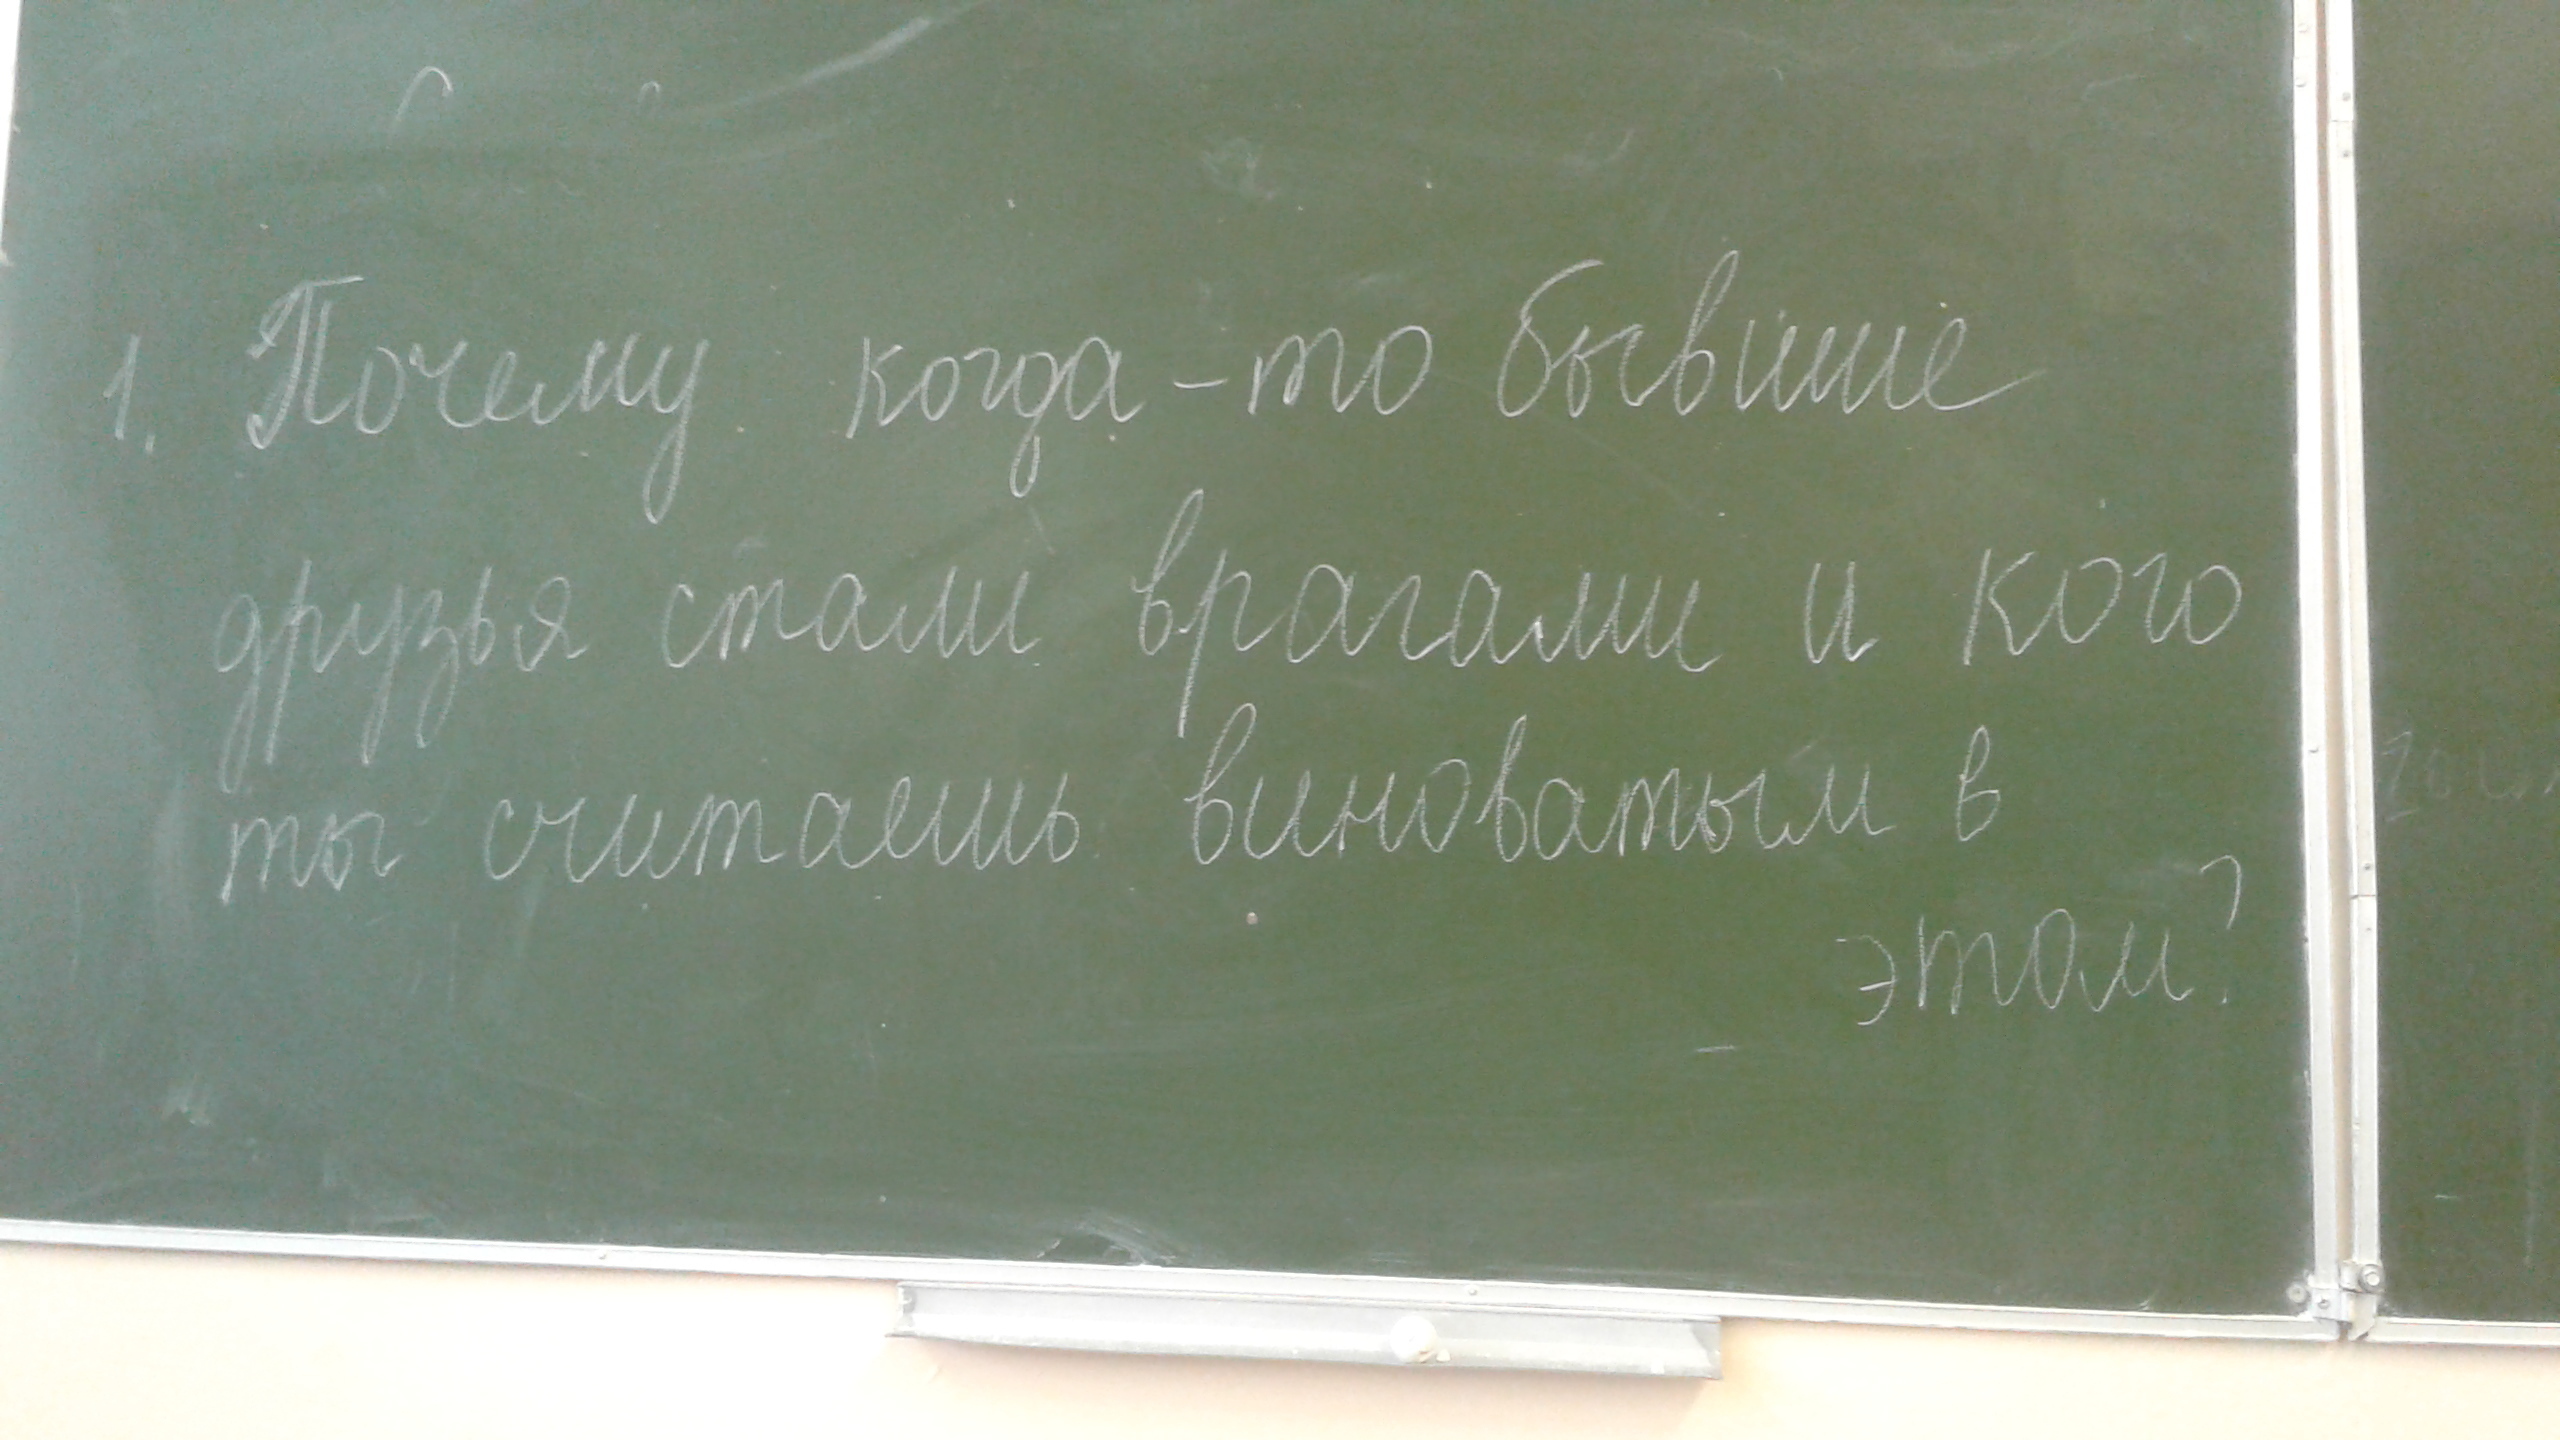 1. Почему когда-то бывшие
друзья стали врагами и кого
ты считаешь виноватым в
этом?